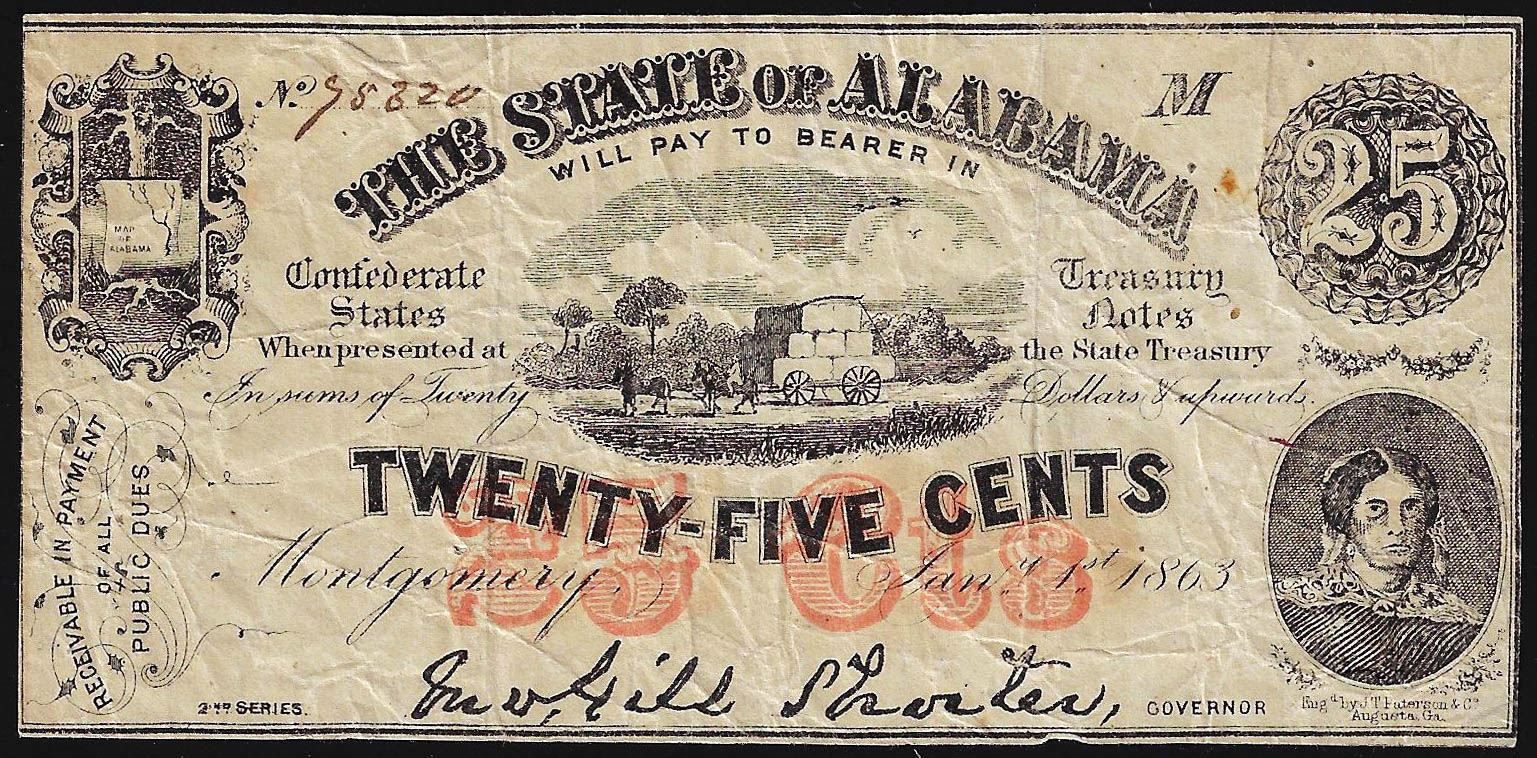 No. 95820
THE STATE OF ALABAMA
M
25
WILL PAY TO BEARER IN
MAP
OF
ALABAMA
Confederate
States
When presented at
Treasury
Notes
the State Treasury
In sums of Twenty Dollars & upwards.
TWENTY-FIVE CENTS
25 Cts
Montgomery, Jany. 1st. 1863
RECEIVABLE IN PAYMENT
OF ALL
PUBLIC DUES
2ND SERIES.
Jno. Gill Shorter, GOVERNOR
Engd. by J T Paterson & Co
Augusta, Ga.